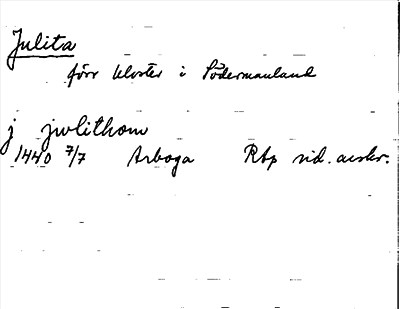 Julita
förr kloster i Södermanland
j jwlithom
1440 7/7 Arboga Rtp vid. avskr.